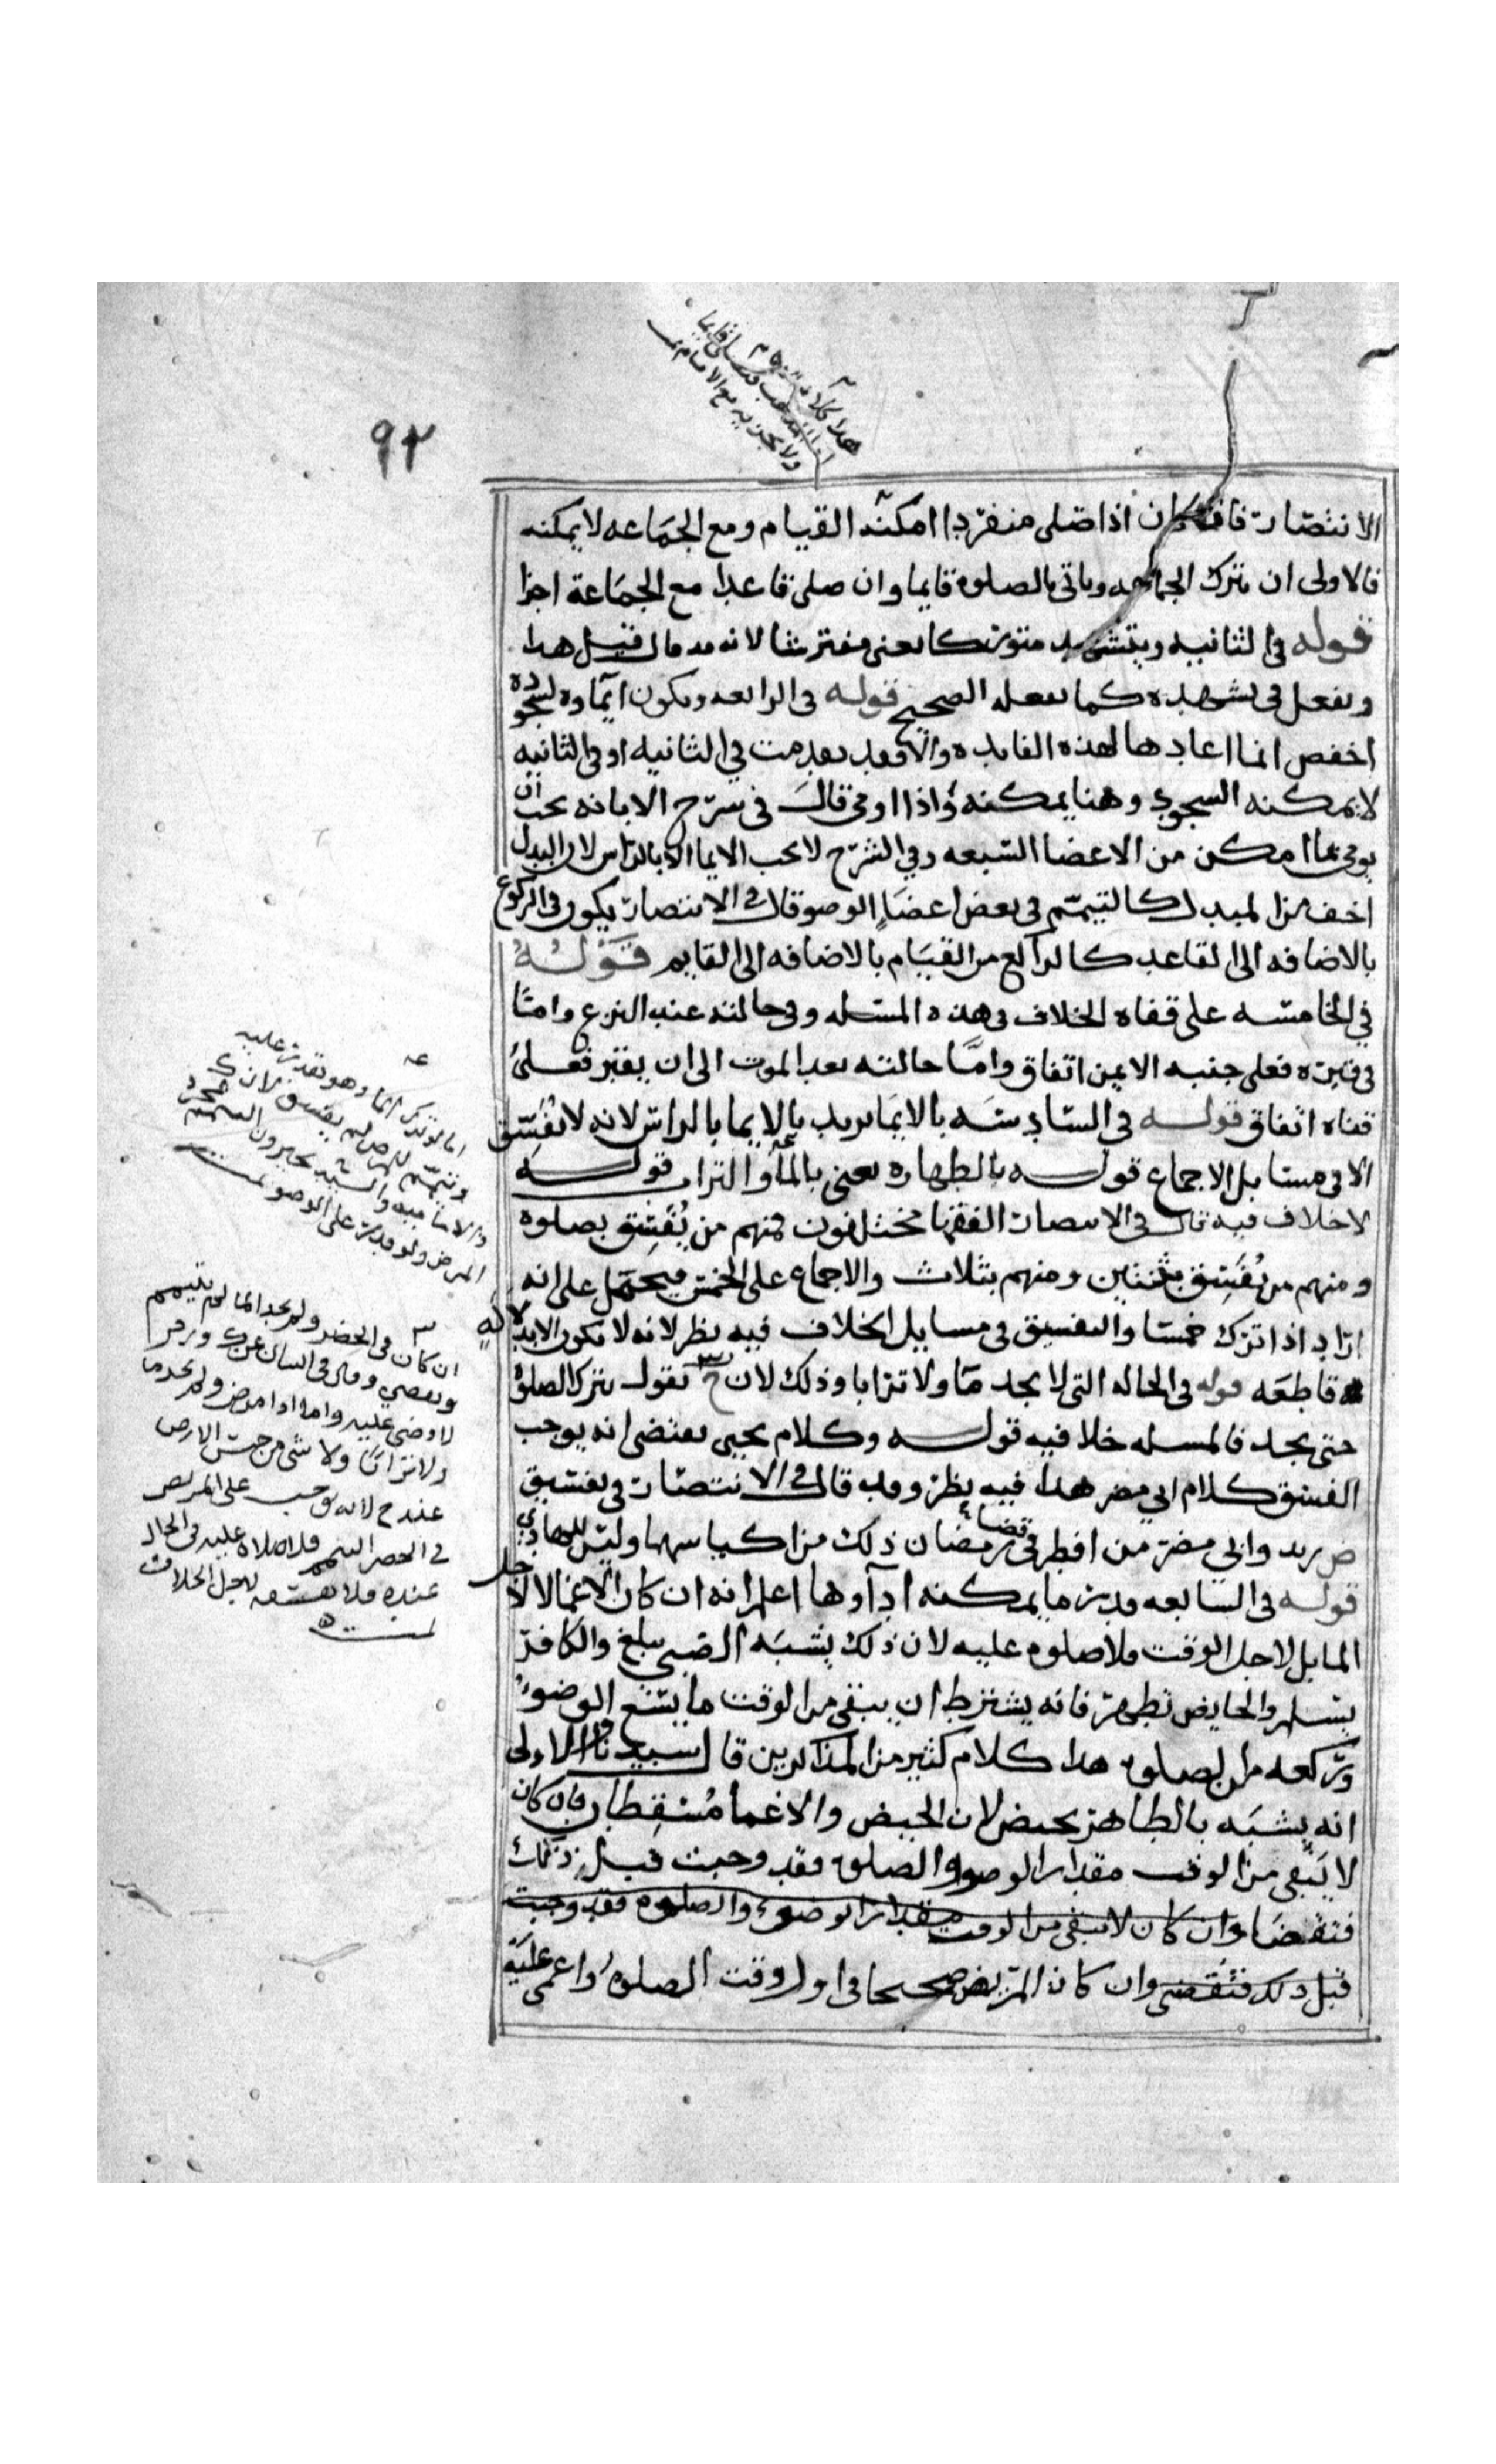 ٩٢
الانتصار فان كان اذا صلى منفردا امكنه القيام ومع الجماعه لا يمكنه
فالاولى ان يترك الجماعه وياتى بالصلوة قايما وان صلى قاعدا مع الجماعة اجزا
قوله فى الثانيه ويتشهد متوركا يعنى مفترشا لانه قد قال قبل هذا
ويفعل فى تشهده كما يفعله الصحيح قوله فى الرابعه ويكون ايماوه لسجوده
اخفض انما اعادها لهذه الفايده والا فقد تقدمت في الثانيه او في الثانيه
لا يمكنه السجود وهنا يمكنه واذا اومى قال فى شرح الابانه يجب ان
يومى بما امكن من الاعضا السبعه وفي الشرح لا يجب الايما الا بالراس لان البدل
اخف من المبدل كالتيمم فى بعض اعضا الوضو قال في الانتصار يكون فى الركوع
بالاضافه الى القاعد كالراكع من القيام بالاضافه الى القايم قوله
في الخامسه على قفاه الخلاف فى هذه المسئله وفى حالته عند النزع واما
فى قبره فعلى جنبه الايمن اتفاق واما حالته بعد الموت الى ان يقبر فعلى
قفاه اتفاق قوله فى السادسه بالايما يريد بالايما بالراس لانه لا يفسق
الا فى مسايل الاجماع قوله بالطهاره يعنى بالما والتراب قوله
لا خلاف فيه قال فى الانتصار الفقها مختلفون فمنهم من يفسق بصلوه
ومنهم من يفسق بثنتين ومنهم بثلاث والاجماع على الخمس فيحتمل على انه
اراد اذا ترك خمسا والتفسيق فى مسايل الخلاف فيه نظر لانه لا يكون الا بدلاله
قاطعه قوله فى الحاله التى لا يجد ما ولا ترابا وذلك لان ح يقول يترك الصلوة
حتى يجد فالمسله خلافيه قوله وكلام يحيى يقتضى انه يوجب
الفسق كلام ابي مضر هذا فيه نظر وقد قال في الانتصار فى تفسيق
ض زيد وابى مضر من افطر فى قضا رمضان ذلك من اكياسهما وليس للهادي
قوله فى السابعه قدر ما يمكنه اداوها اعلم انه ان كان الاغما لا لاجل
المايل لاجل الوقت فلا صلوه عليه لان ذلك يشبه الصبي يبلغ والكافر
يسلم والحايض تطهر فانه يشترط ان يبقى من الوقت ما يتسع الوضوء
وركعه من الصلوه هذا كلام كثير من المذاكرين قال سيدنا والاولى
انه يشبه بالطاهر يحيض لان الحيض والاغما مسقطان فان كان
لا يبقى من الوقت مقدار الوضو والصلوه فقد وجبت قبل ذلك
فتقضا وان كان لا يبقى من الوقت مقدار الوضوء والصلوه فقد وجبت
قبل ذلك فتقضى وان كان المريض صحيحا فى اول وقت الصلوه واغمى عليه
ولا يجزيه مع الامام
اما لو ترك الما وهو يقدر عليه
المرض ولو قدر على الوضو
ان كان فى الحضر ولم يجد الما لم يتيمم
لا وضى عليه واما اذا مرض ولم يجد ما
ولا ترابا ولا شى من جنس الارض
عند ح لانه يوجب على المريض
فى الحضر التيمم فلا صلاه عليه فى الحال
عنده فلا يفسق لاجل الخلاف